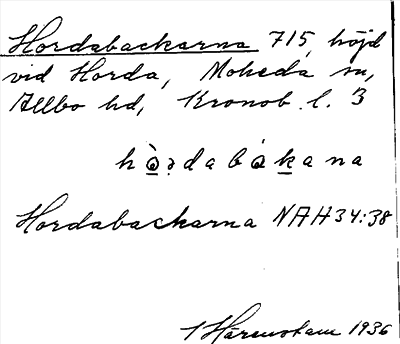 Hordabackarna 715, höjd
vid Horda, Moheda sn,
Allbo hd, Kronob. l. 3
hò̱ɂdabàḵana
Hordabackarna NAH34:38
1936